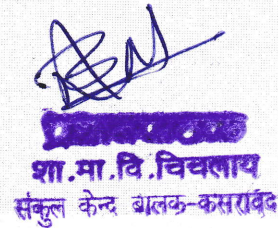 शा.मा.वि.चिचलाय
संकुल केन्द बालक-कसरावद